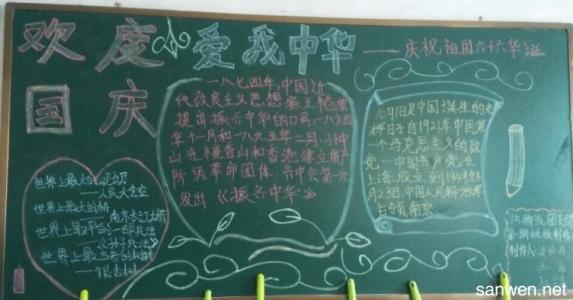 欢度
国庆
爱我中华
——庆祝祖国六十六华诞
一八七四年,中国近
代改良主义思想
提出振兴中华的口号,一八九四
年十一月和一八九五年二月,孙中
山在檀香山和香港建立资产
阶级革命团体,兴中会第一次
发出《振兴中华》
10月1日是中国诞生的
日子自1921年中国第
一个马克思主义的政
党一中国共产党在
上海成立到1949年
月23日,中国人民解放
占领南京
世界上最大的
——人民大会堂
世界上最大的桥
南京长江大桥
世界上最早的一部兵法
——《孙子兵法》
世界上最古老的树种
——银杏树
制作人
sanwen.net